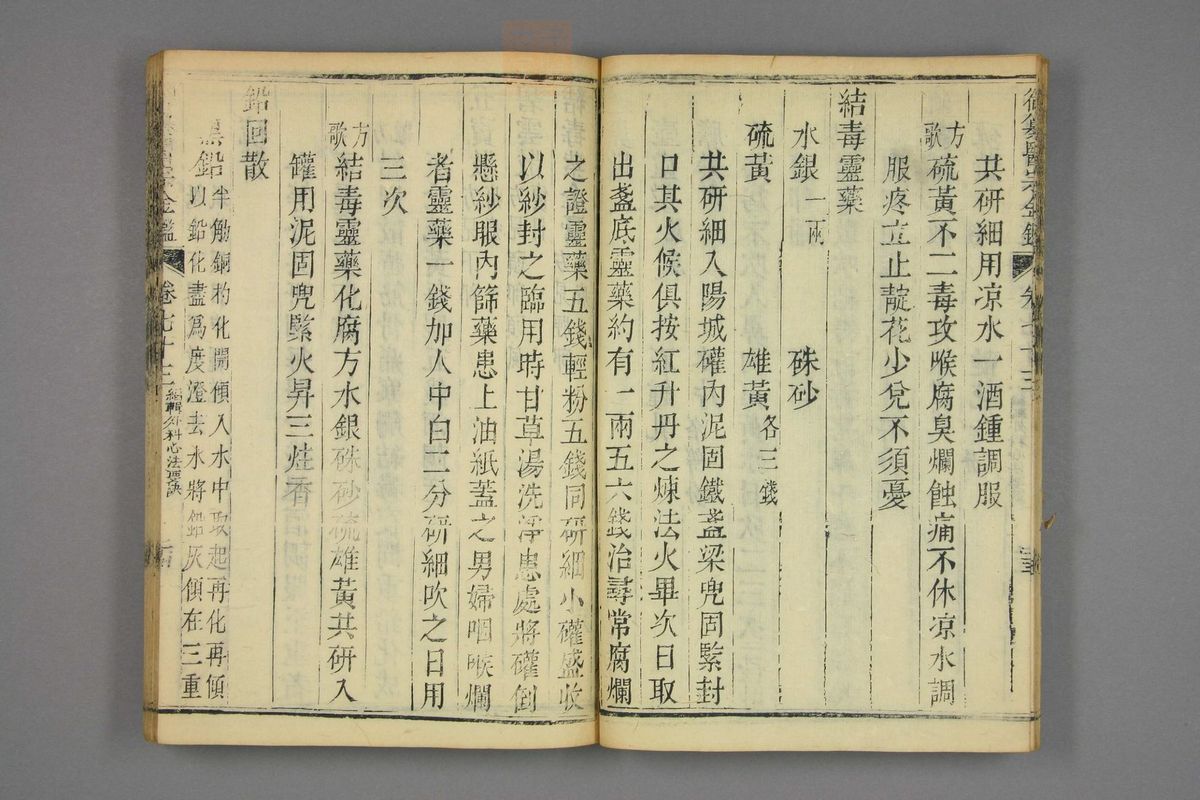 御纂醫宗金鑑 卷七十三
共研細用凉水一酒鍾調服
方歌 硫黃不二毒攻喉腐臭爛蝕痛不休凉水調
服疼立止靛花少兌不須憂
結毒靈藥
水銀一兩 硃砂
硫黃 雄黃各三錢
共研細入陽城確內泥固鐵盞梁兜固緊封
口其火候俱按紅升丹之煉法火畢次日取
出盞底靈藥約有一兩五六錢治尋常腐爛
之證靈藥五錢輕粉五錢同研細小確盛收
以紗封之臨用時甘草湯洗淨患處將確倒
懸紗眼內篩藥患上油紙蓋之男婦咽喉爛
者靈藥一錢加人中白二分研細吹之日用
三次
方歌 結毒靈藥化腐方水銀硃砂硫雄黃共研入
罐用泥固兜緊火昇三炷香
鉛回散
黑鉛半觔銅杓化開傾入水中取起再化再傾
以鉛化盡爲度澄去水將鉛灰傾在三重
醫宗金鑑 卷七十三 編輯外科心法要訣